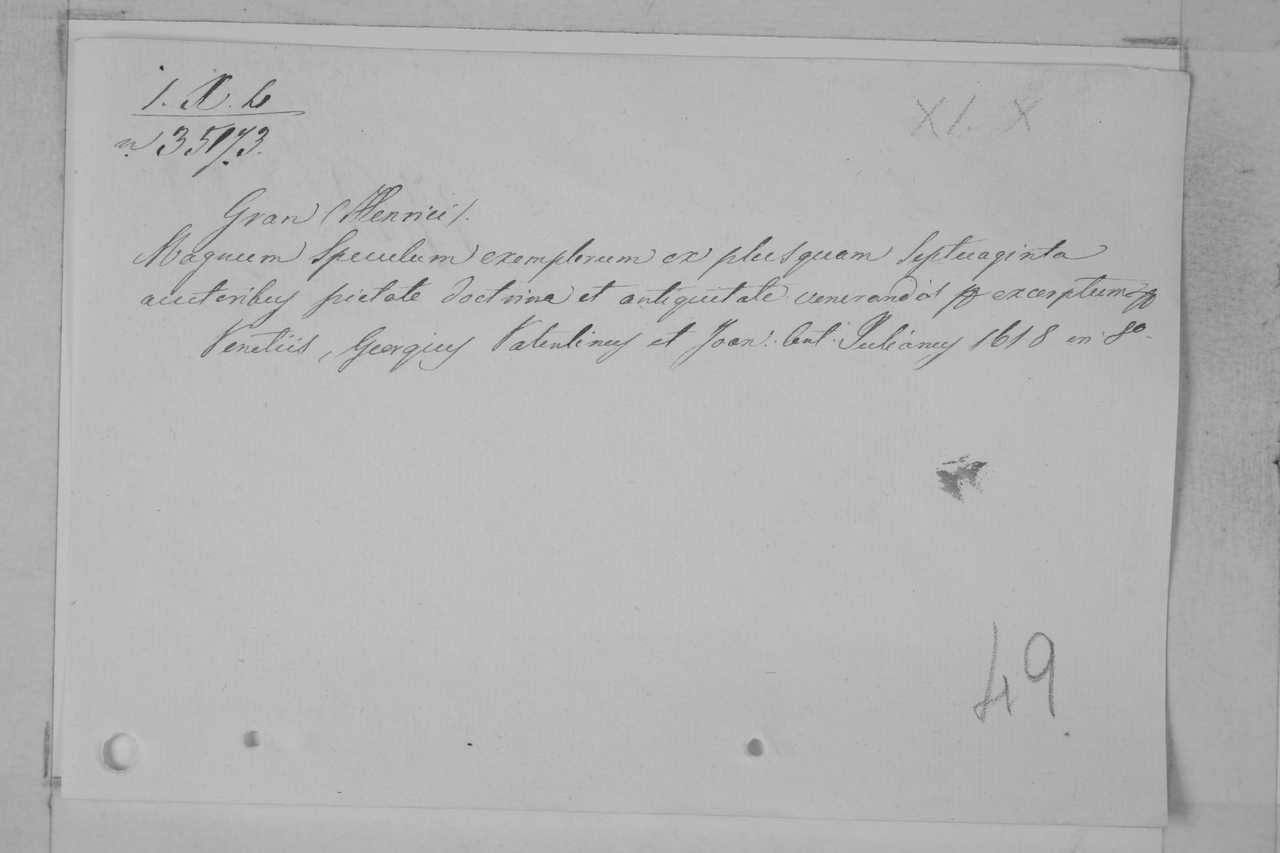 1. X. b
XI. X
n. 35173.
Gran (Henrici).
Magnum Speculum exemplorum ex plusquam Septuaginta
auctoribus pietate doctrina et antiquitate venerandis excerptum
Venetiis, Georgius Valentinus et Joan: Ant: Julianus 1618 in 8o.
49